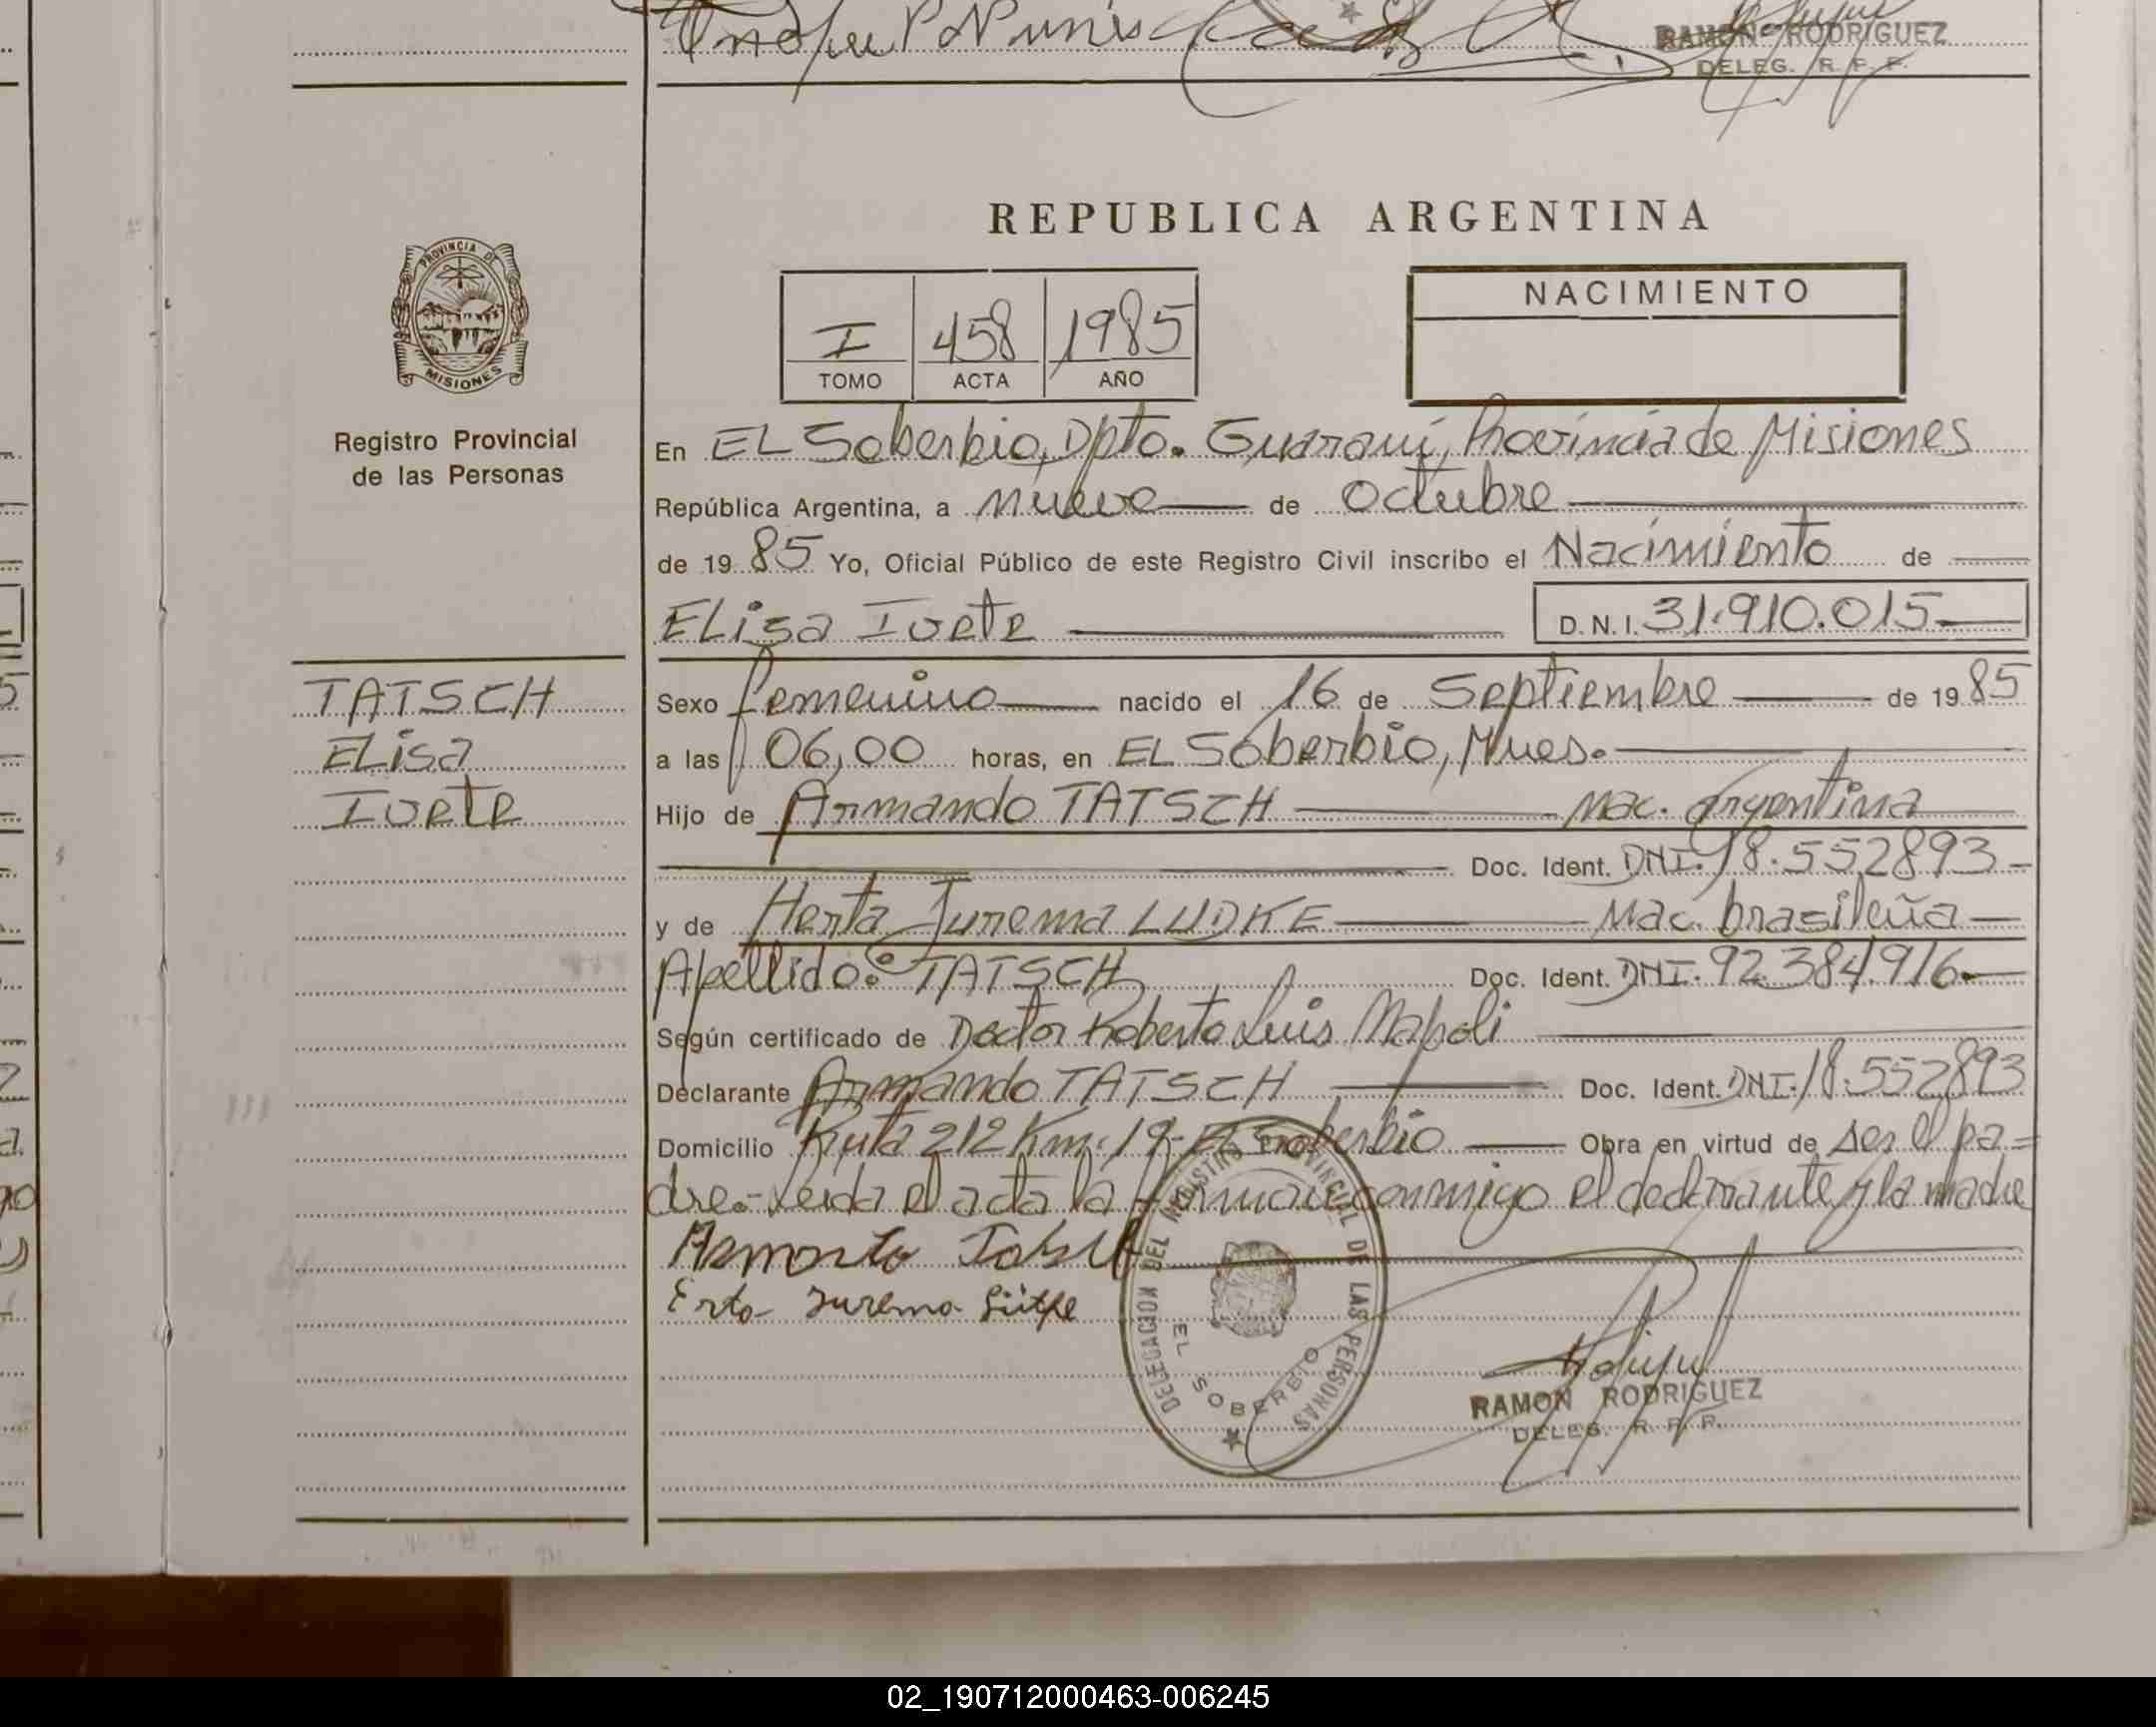 RAMON RODRIGUEZ
DELEG. R. P. P.
REPUBLICA ARGENTINA
PROVINCIA DE
MISIONES
Registro Provincial
de las Personas
I 458 1985
TOMO ACTA AÑO
NACIMIENTO
En EL Soberbio, Dpto. Guaraní, Provincia de Misiones
República Argentina, a nueve de octubre
de 1985 Yo, Oficial Público de este Registro Civil inscribo el Nacimiento de
ELisa Ivete D.N.I. 31.910.015
TATSCH
ELisa
Ivete
Sexo femenino nacido el 16 de Septiembre de 1985
a las 06,00 horas, en EL Soberbio, Mnes.
Hijo de Armando TATSCH Nac. argentina
Doc. Ident. DNI. 18.552893
y de Herta Jurema LUDKE Nac. brasileña
Apellido: TATSCH Doc. Ident. DNI. 92.384.916
Según certificado de Doctor Roberto Luis Napoli
Declarante Armando TATSCH Doc. Ident. DNI. 18.552893
Domicilio Ruta 212 Km. 19- El Soberbio Obra en virtud de ser el pa=
dre.- Leida el acta la firman conmigo el declarante y la madre
Erta Jurema
DELEGACION DEL REGISTRO PROVINCIAL DE LAS PERSONAS
EL SOBERBIO
RAMON RODRIGUEZ
DELEG. R. P. P.
02_190712000463-006245